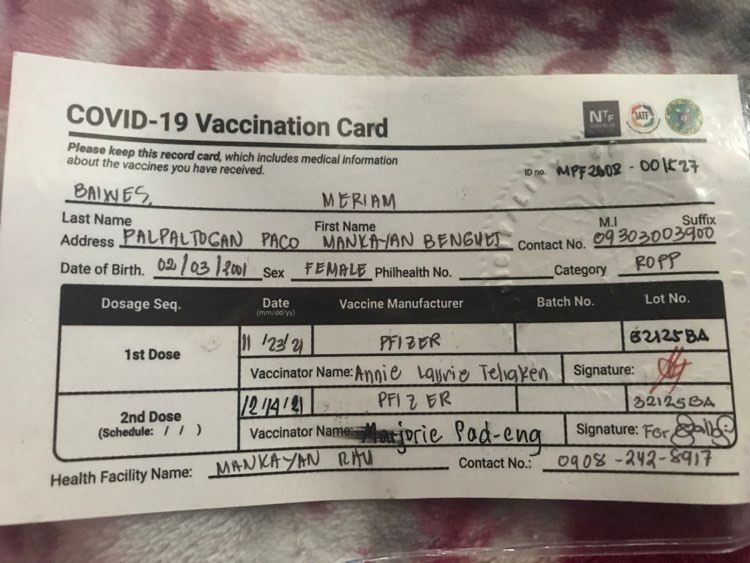 COVID-19 Vaccination Card
NTF
COVID-19
IATF
Please keep this record card, which includes medical information
about the vaccines you have received.
ID no. MPF2808 - 001527
BAIWES, MERIAM
Last Name First Name M.I Suffix
Address PALPALTOGAN PACO MANKAYAN BENGUET Contact No. 09303003900
Date of Birth. 02/03/2001 Sex FEMALE Philhealth No. Category ROPP
Dosage Seq. Date (mm/dd/yy) Vaccine Manufacturer Batch No. Lot No.
1st Dose 11/23/21 PFIZER 32125BA
Vaccinator Name: Annie Laurie Teliaken Signature:
2nd Dose 12/14/21 PFIZER 32125BA
(Schedule: / / ) Vaccinator Name: Marjorie Pad-eng Signature: For
Health Facility Name: MANKAYAN RHU Contact No.: 0908-242-8917